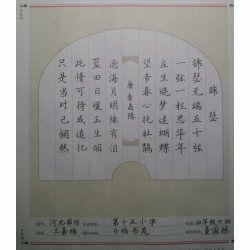 锦瑟
锦瑟无端五十弦
一弦一柱思华年
庄生晓梦迷蝴蝶
望帝春心托杜鹃
唐李商隐
沧海月明珠有泪
蓝田日暖玉生烟
此情可待成追忆
只是当时已惘然
河北廊坊
第十五小学